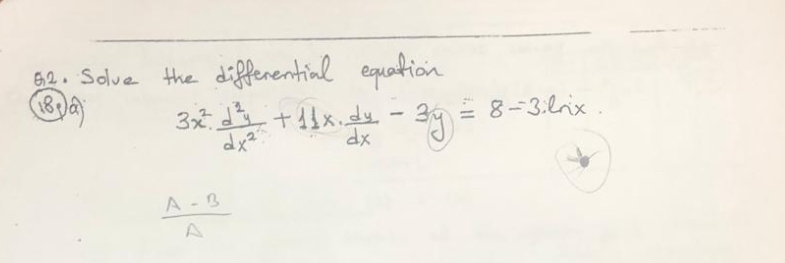 Q2. Solve the differential equation
(18p) a) 3x². d²y/dx² + 11x. dy/dx - 3y = 8-3.lnx.
A - B
A